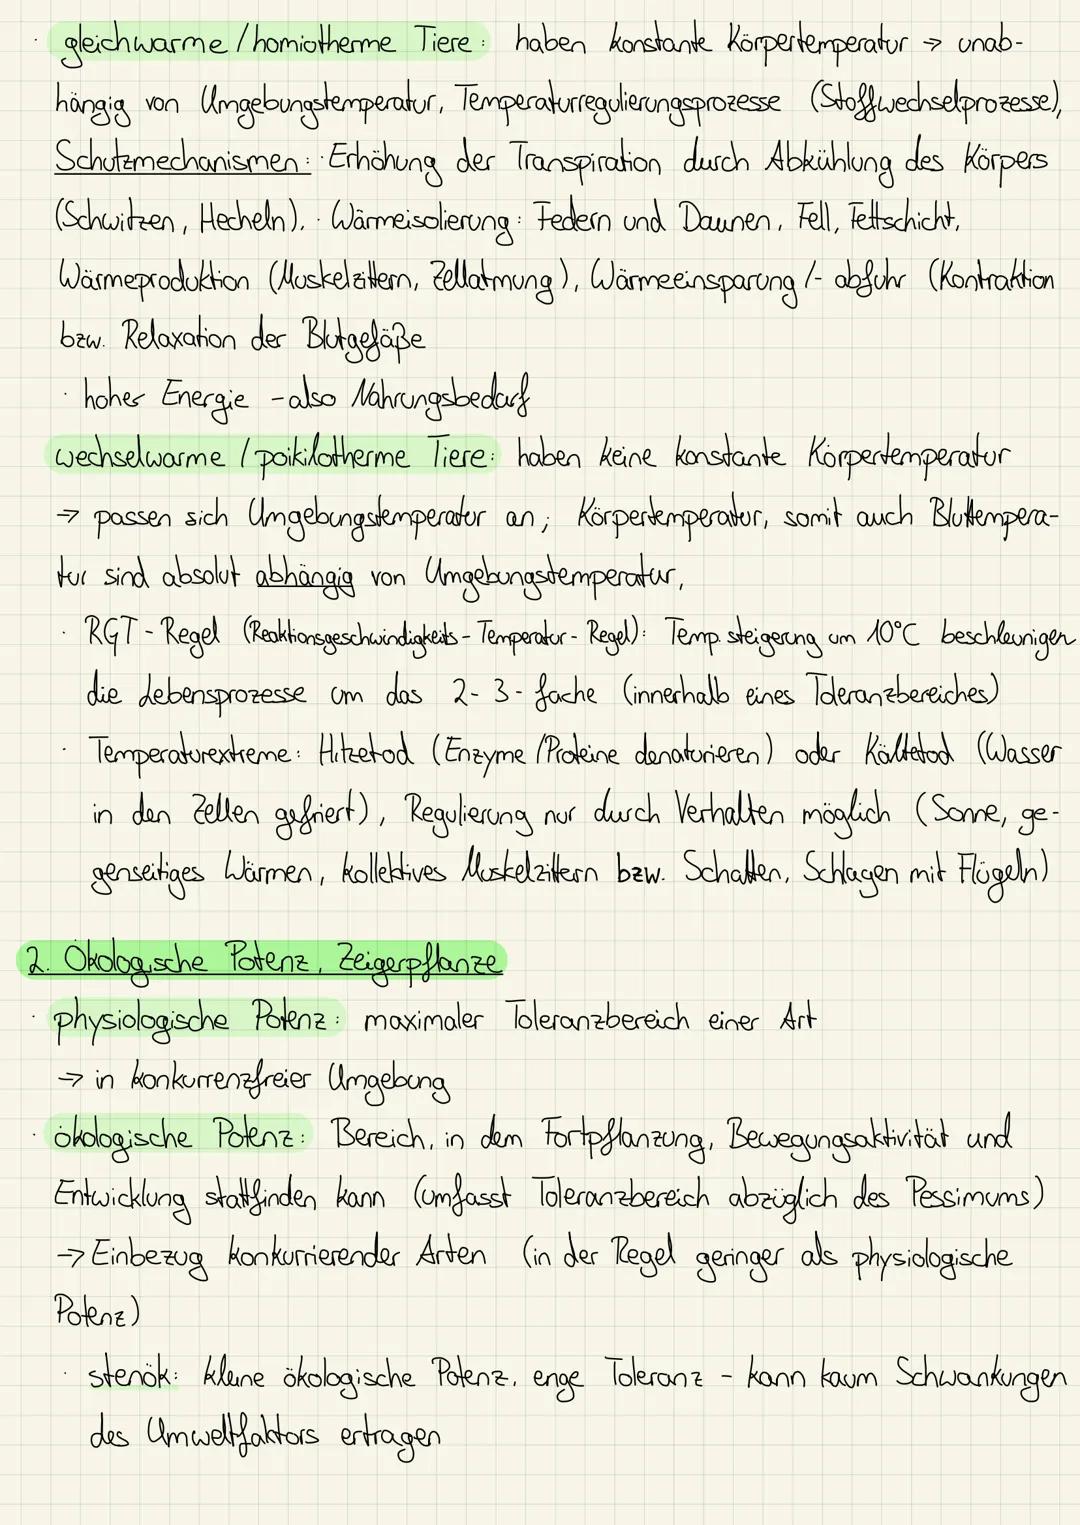 · gleichwarme / homiotherme Tiere: haben konstante Körpertemperatur → unab-
hängig von Umgebungstemperatur, Temperaturregulierungsprozesse (Stoffwechselprozesse),
Schutzmechanismen: · Erhöhung der Transpiration durch Abkühlung des Körpers
(Schwitzen, Hecheln), · Wärmeisolierung: Federn und Daunen, Fell, Fettschicht,
Wärmeproduktion (Muskelzittern, Zellatmung), Wärmeeinsparung /- abfuhr (Kontraktion
bzw. Relaxation der Blutgefäße
· hoher Energie - also Nahrungsbedarf
wechselwarme / poikilotherme Tiere: haben keine konstante Körpertemperatur
→ passen sich Umgebungstemperatur an; Körpertemperatur, somit auch Bluttempera-
tur sind absolut abhängig von Umgebungstemperatur,
· RGT - Regel (Reaktionsgeschwindigkeits - Temperatur - Regel): Temp. steigerung um 10°C beschleunigen
die Lebensprozesse um das 2- 3 - fache (innerhalb eines Toleranzbereiches)
· Temperaturextreme: Hitzetod (Enzyme / Proteine denaturieren) oder Kältetod (Wasser
in den Zellen gefriert), Regulierung nur durch Verhalten möglich (Sonne, ge-
genseitiges Wärmen, kollektives Muskelzittern bzw. Schatten, Schlagen mit Flügeln)
2. Ökologische Potenz, Zeigerpflanze
· physiologische Potenz: maximaler Toleranzbereich einer Art
→ in konkurrenzfreier Umgebung
· ökologische Potenz: Bereich, in dem Fortpflanzung, Bewegungsaktivität und
Entwicklung stattfinden kann (umfasst Toleranzbereich abzüglich des Pessimums)
→ Einbezug konkurrierender Arten (in der Regel geringer als physiologische
Potenz)
· stenök: kleine ökologische Potenz, enge Toleranz - kann kaum Schwankungen
des Umweltfaktors ertragen